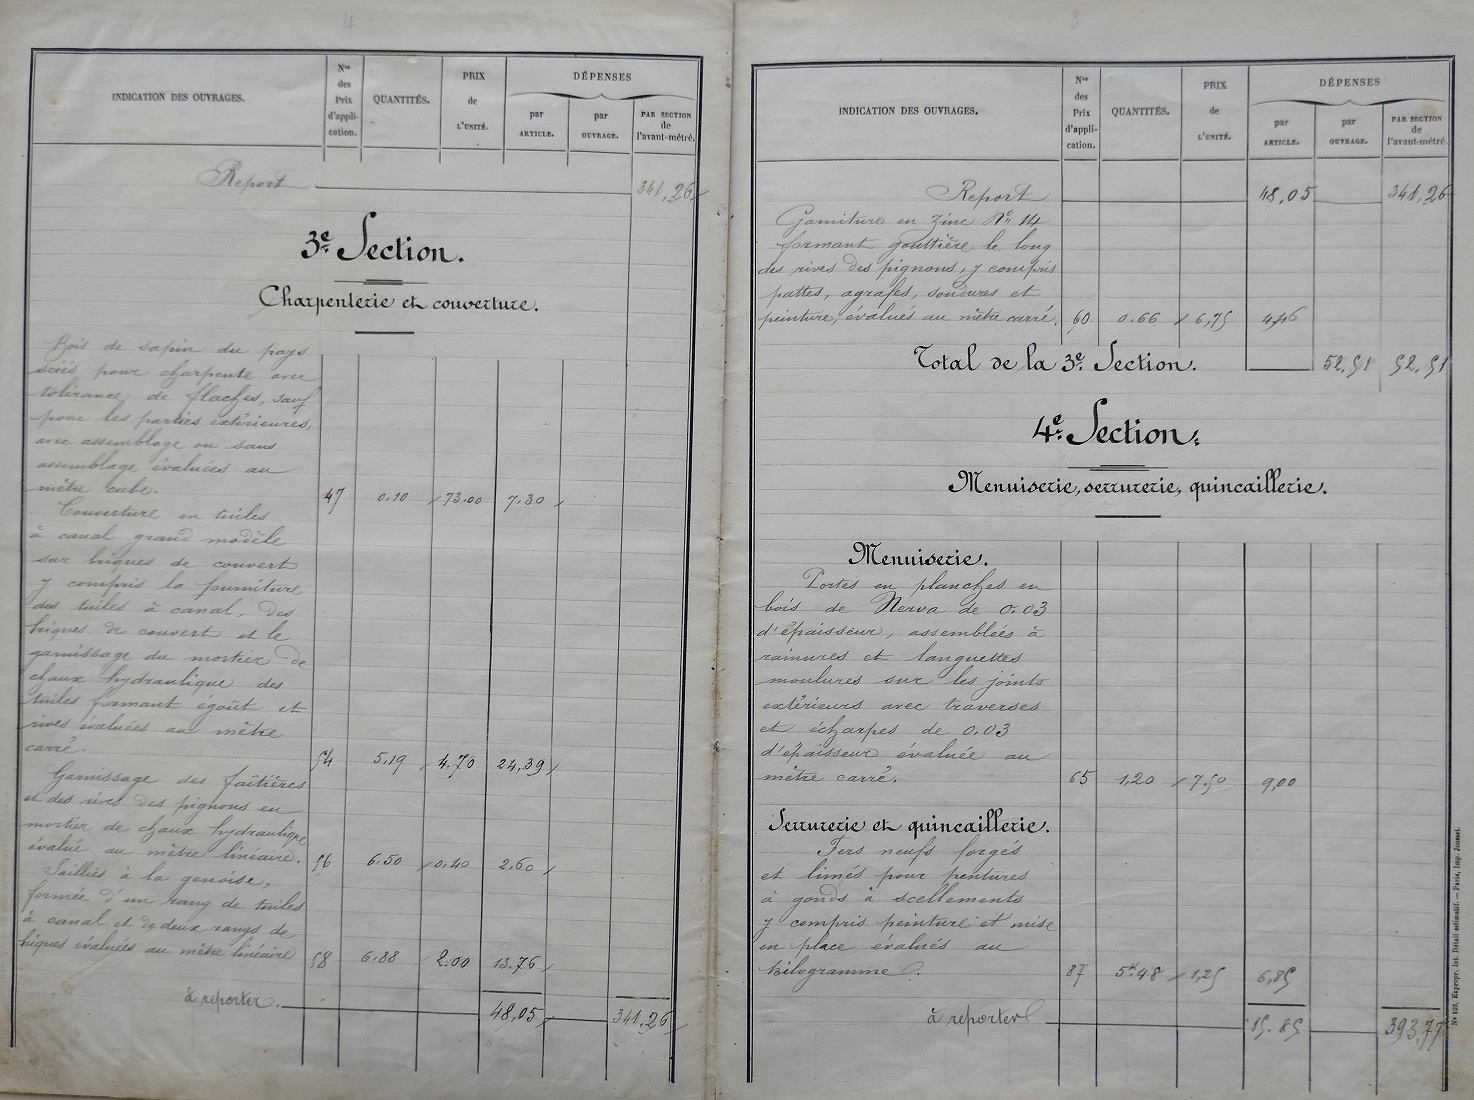 4
INDICATION DES OUVRAGES.
Nos des Prix d'appli- cation.
QUANTITÉS.
PRIX de L'UNITÉ.
DÉPENSES
par ARTICLE.
par OUVRAGE.
PAR SECTION de l'avant-métré.
Report 341,26
3e Section.
Charpenterie et couverture.
Bois de sapin du pays
sciés pour charpente avec
tolérance de flaches, sauf
pour les parties extérieures,
avec assemblage ou sans
assemblage évaluées au
mètre cube. 47 0.10 73.00 7.30
Couverture en tuiles
à canal grand modèle
sur briques de couvert
y compris la fourniture
des tuiles à canal, des
briques de couvert et le
garnissage du mortier de
chaux hydraulique des
tuiles formant égoût et
rives évaluées au mètre
carré. 54 5.19 4.70 24,39
Garnissage des faîtières
et des rives des pignons en
mortier de chaux hydraulique
évalué au mètre linéaire. 56 6.50 0.40 2.60
Saillies à la genoise,
formée d'un rang de tuiles
à canal et de deux rangs de
briques évaluées au mètre linéaire 58 6.88 2.00 13.76
à reporter. 48,05 341,26
3
INDICATION DES OUVRAGES.
Nos des Prix d'appli- cation.
QUANTITÉS.
PRIX de L'UNITÉ.
DÉPENSES
par ARTICLE.
par OUVRAGE.
PAR SECTION de l'avant-métré.
Report 48,05 341,26
Garniture en zinc No 14
formant gouttière le long
des rives des pignons, y compris
pattes, agrafes, soudures et
peinture, évalués au mètre carré. 60 0.66 6,75 4,46
Total de la 3e Section. 52.51 52.51
4e Section.
Menuiserie, serrurerie, quincaillerie.
Menuiserie.
Portes en planches en
bois de Nerva de 0.03
d'épaisseur, assemblées à
rainures et languettes
moulures sur les joints
extérieurs avec traverses
et écharpes de 0.03
d'épaisseur évaluée au
mètre carré. 65 1,20 7.50 9,00
Serrurerie et quincaillerie.
Fers neufs forgés
et limés pour pentures
à gonds à scellements
y compris peinture et mise
en place évalués au
kilogramme. 87 5k48 1,25 6,85
à reporter 15.85 393,77
No 109, Expropr. Int. Détail estimatif. — Paris, Imp. Jousset.